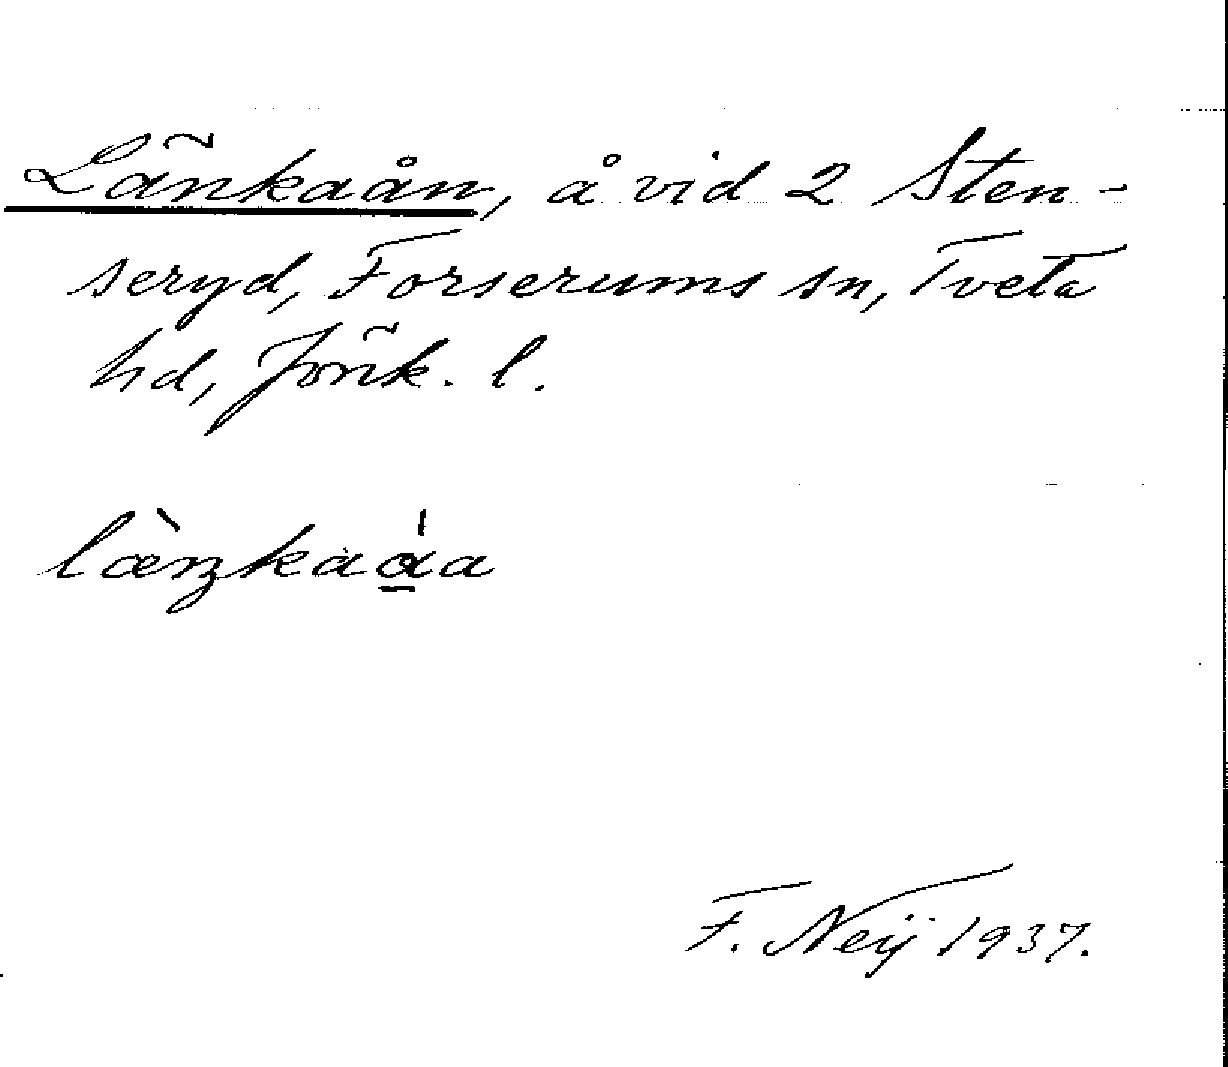 Länkaån, å vid 2 Sten-
seryd, Forserums sn, Tveta
hd, Jönk. l.
læ̀ŋkaa̱̍a
F. Neij 1937.